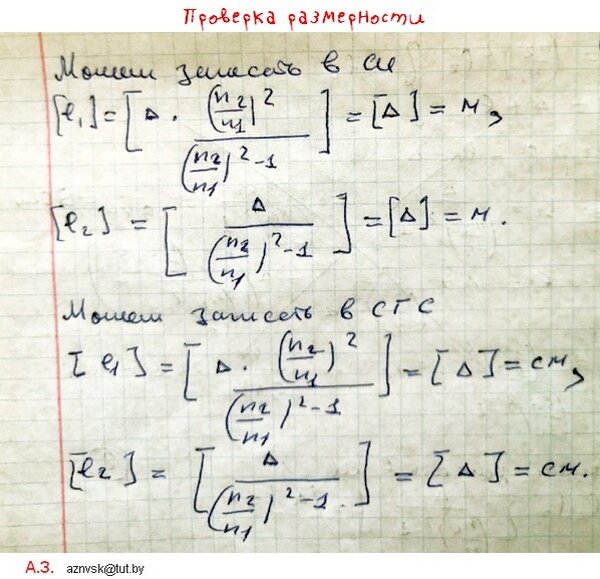 Проверка размерности
Можем записать в СИ
[ℓ₁] = [Δ · (n₂/n₁)² / ((n₂/n₁)² - 1)] = [Δ] = м,
[ℓ₂] = [Δ / ((n₂/n₁)² - 1)] = [Δ] = м.
Можем записать в СГС
[ℓ₁] = [Δ · (n₂/n₁)² / ((n₂/n₁)² - 1)] = [Δ] = см,
[ℓ₂] = [Δ / ((n₂/n₁)² - 1)] = [Δ] = см.
А.З. aznvsk@tut.by